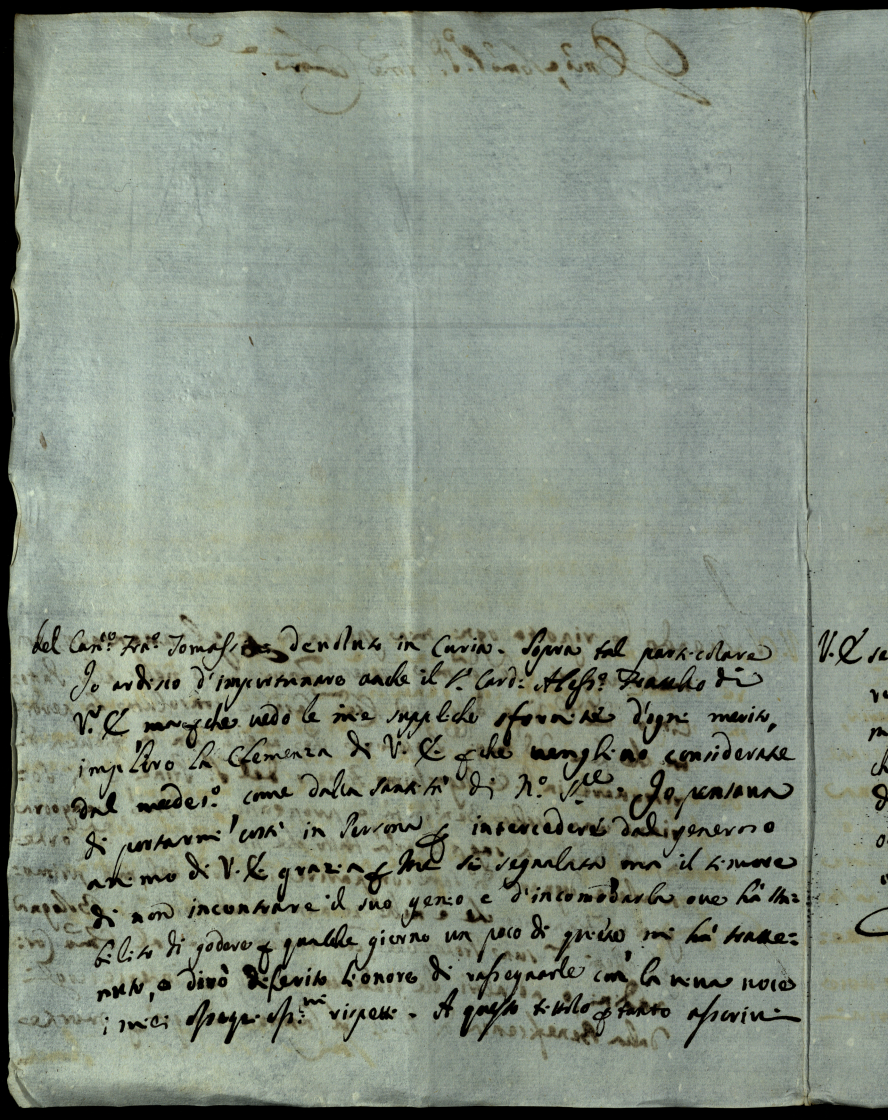 del Can.co Fra.o Tomassi devoluto in Curia. Sopra tal particolare
Io ardisco d'importunare anche il S.r Card: Aless.o fratello di
V.a E. ma perche vedo le mie suppliche sfornite d'ogni merito,
imploro la Clemenza di V. E. perche venghino considerate
dal medes.o come dalla Santità di N.o Sig.re Io pensava
di portarmi costì in Persona per intercedere dal generoso
animo di V. E. grazia per me sì segnalata ma il timore
di non incontrare il suo genio e d'incomodarla ove hà sta=
bilito di godere per qualche giorno un poco di quiete mi hà tratte=
nuto, e differito l'onore di rassegnarle con la viva voce
i miei ossequiosiss.mi rispetti. A questo titolo per tanto
V. E.